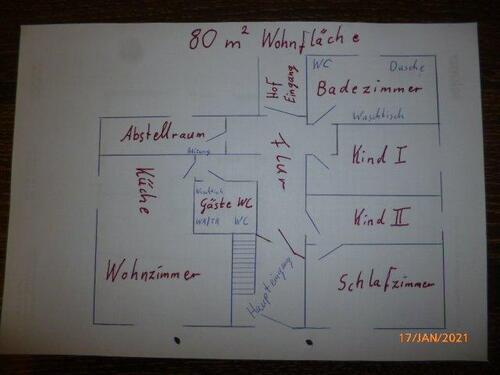 80 m² Wohnfläche
Hof
Eingang
WC
Dusche
Badezimmer
Waschtisch
Abstellraum
Flur
Kind I
Heizung
Küche
Waschtisch
Gäste WC
WA/TR WC
Kind II
Wohnzimmer
Haupteingang
Schlafzimmer
17/JAN/2021